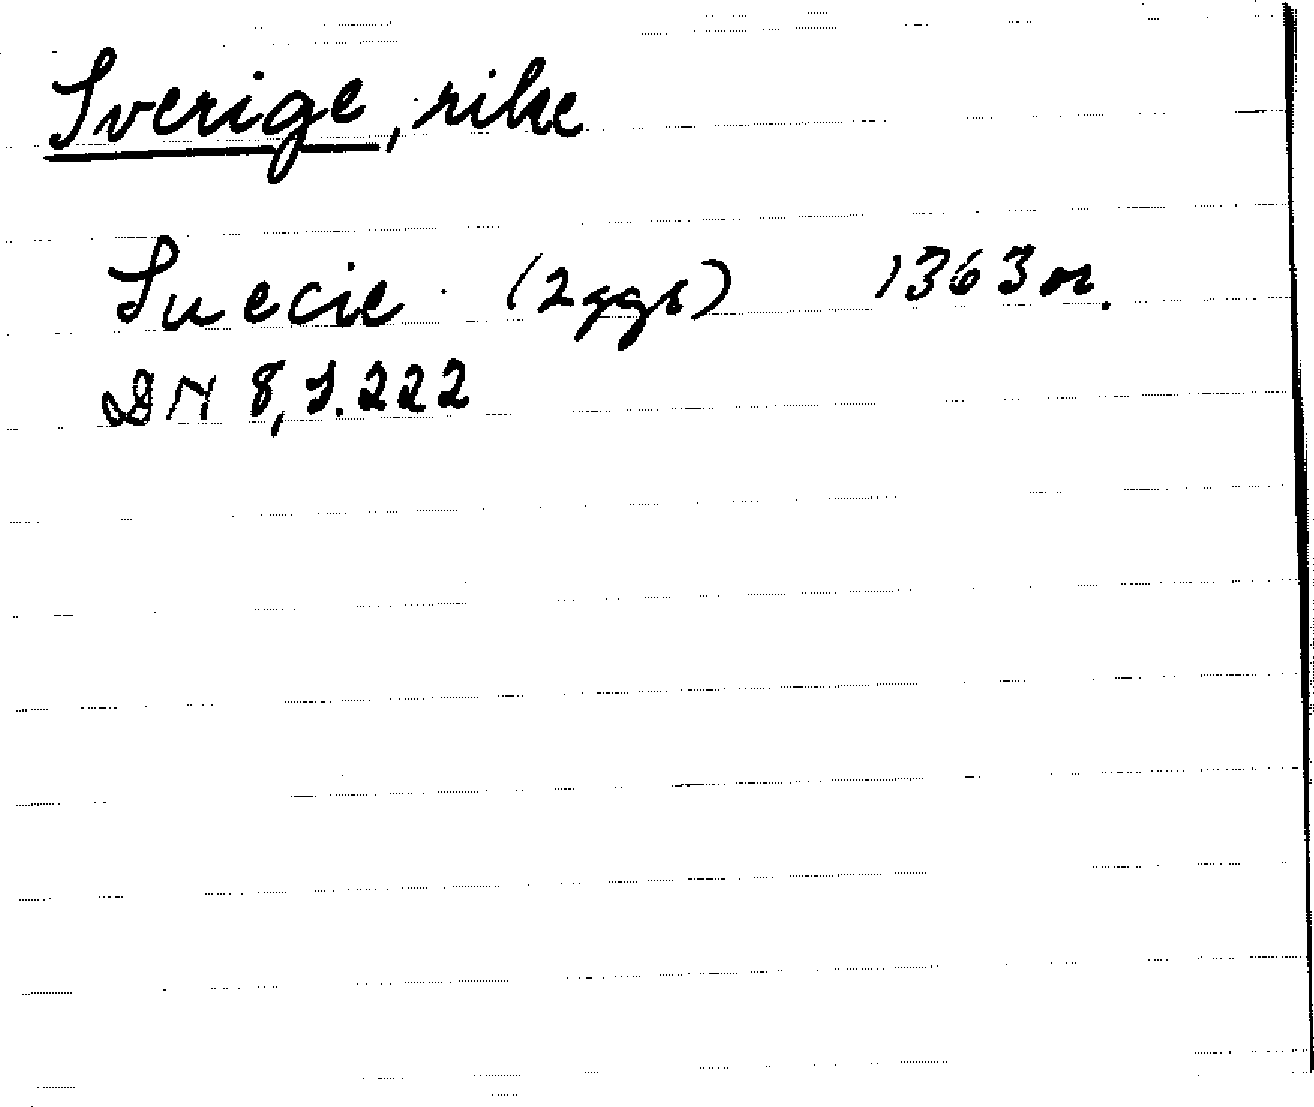 Sverige, rike
Suecie (2 ggr) 1363 or.
DN 8, s. 222